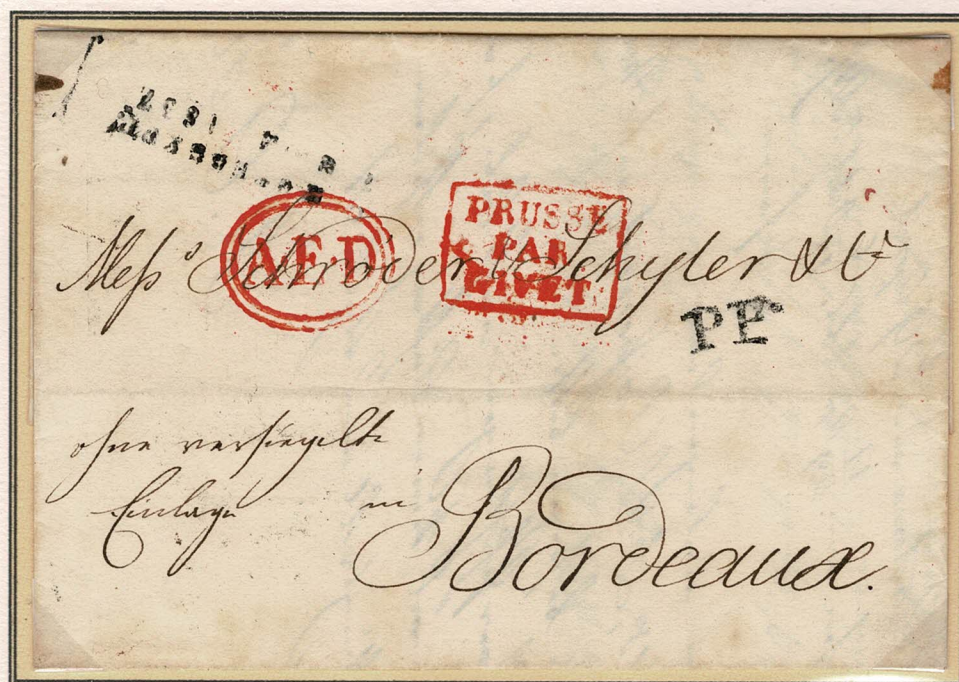 A.E.D.
PRUSSE
PAR
GIVET.
Messrs Schröder & Schyler & Co
PP.
ohne versiegelte
Einlage in
Bordeaux.